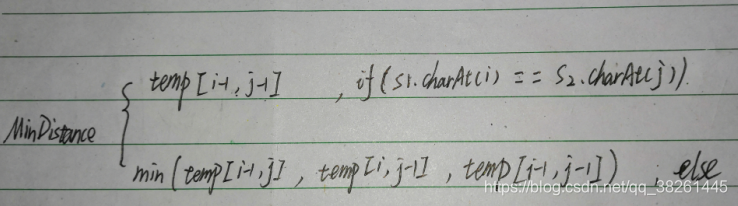 temp[i-1, j-1] , if(S1.charAt(i) == S2.charAt(j))
MinDistance
min(temp[i-1, j] , temp[i, j-1] , temp[i-1, j-1]) , else
https://blog.csdn.net/qq_38261445